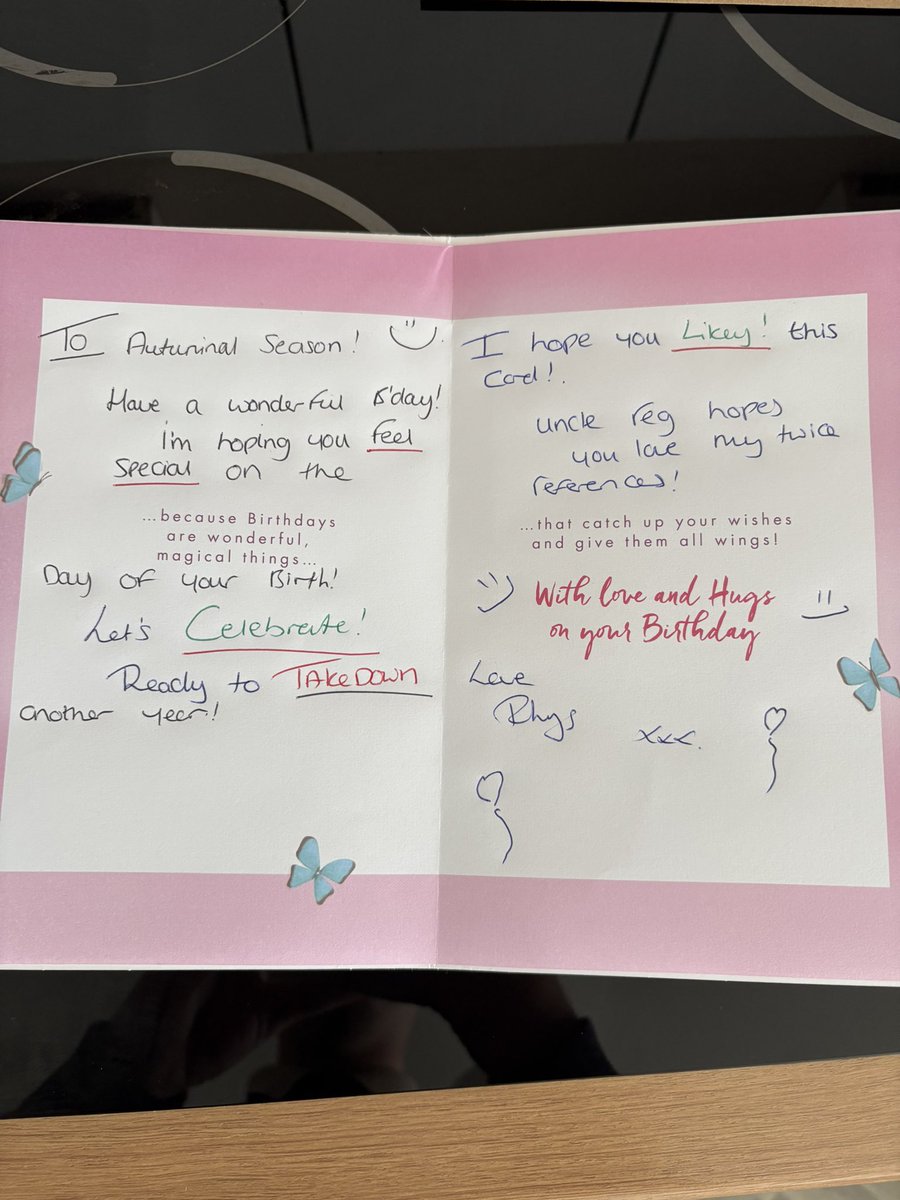 To Autuminal Season!
Have a wonderful B'day!
I'm hoping you feel
special on the
...because Birthdays
are wonderful,
magical things...
Day of your Birth!
Let's Celebrate!
Ready to TAKEDOWN
another year!
I hope you Likey! this
Card!.
uncle reg hopes
you love my twice
references!
...that catch up your wishes
and give them all wings!
With love and Hugs
on your Birthday
Love
Rhys xxx.